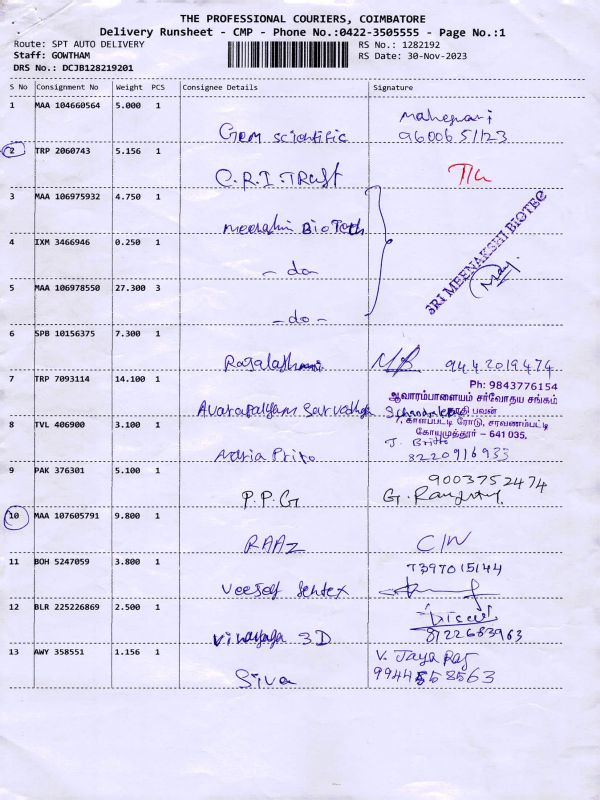 THE PROFESSIONAL COURIERS, COIMBATORE
Delivery Runsheet - CMP - Phone No.:0422-3505555 - Page No.:1
Route: SPT AUTO DELIVERY RS No.: 1282192
Staff: GOWTHAM RS Date: 30-Nov-2023
DRS No.: DCJB128219201
S No Consignment No Weight PCS Consignee Details Signature
1 MAA 104660564 5.000 1
Maheswari
Gem scientific 9600651123
2 TRP 2060743 5.156 1
C.R.I. Trust
3 MAA 106975932 4.750 1
Meenakshi BioTech
SRI MEENAKSHI BIOTEC
4 IXM 3466946 0.250 1
- do -
5 MAA 106978550 27.300 3
- do -
6 SPB 10156375 7.300 1
Rajalakshmi 9442019474
7 TRP 7093114 14.100 1
Ph: 9843776154
ஆவாரம்பாளையம் சர்வோதய சங்கம்
காதி பவன்
Avarampalyam Sarvodhya
7, காளப்பட்டி ரோடு, சரவணம்பட்டி
8 TVL 406900 3.100 1
கோயமுத்தூர் – 641 035.
J. Britto
Adria Prito 8220916933
9 PAK 376301 5.100 1
9003752474
P.P.G G.
10 MAA 107605791 9.800 1
RAAZ C/W
11 BOH 5247059 3.800 1
7397015144
12 BLR 225226869 2.500 1
Vinayaga 3D 8122683963
13 AWY 358551 1.156 1
V. Jayaraj
Siva 9944558563